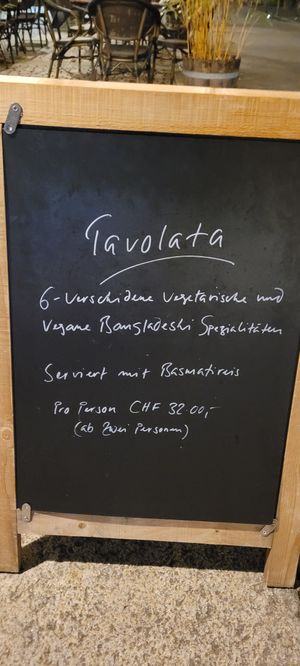 Tavolata
6-Verschidene Vegetarische und
Vegane Bangladeshi Spezialitäten
Serviert mit Basmatireis
Pro Person CHF 32.00,-
(ab Zwei Personen)